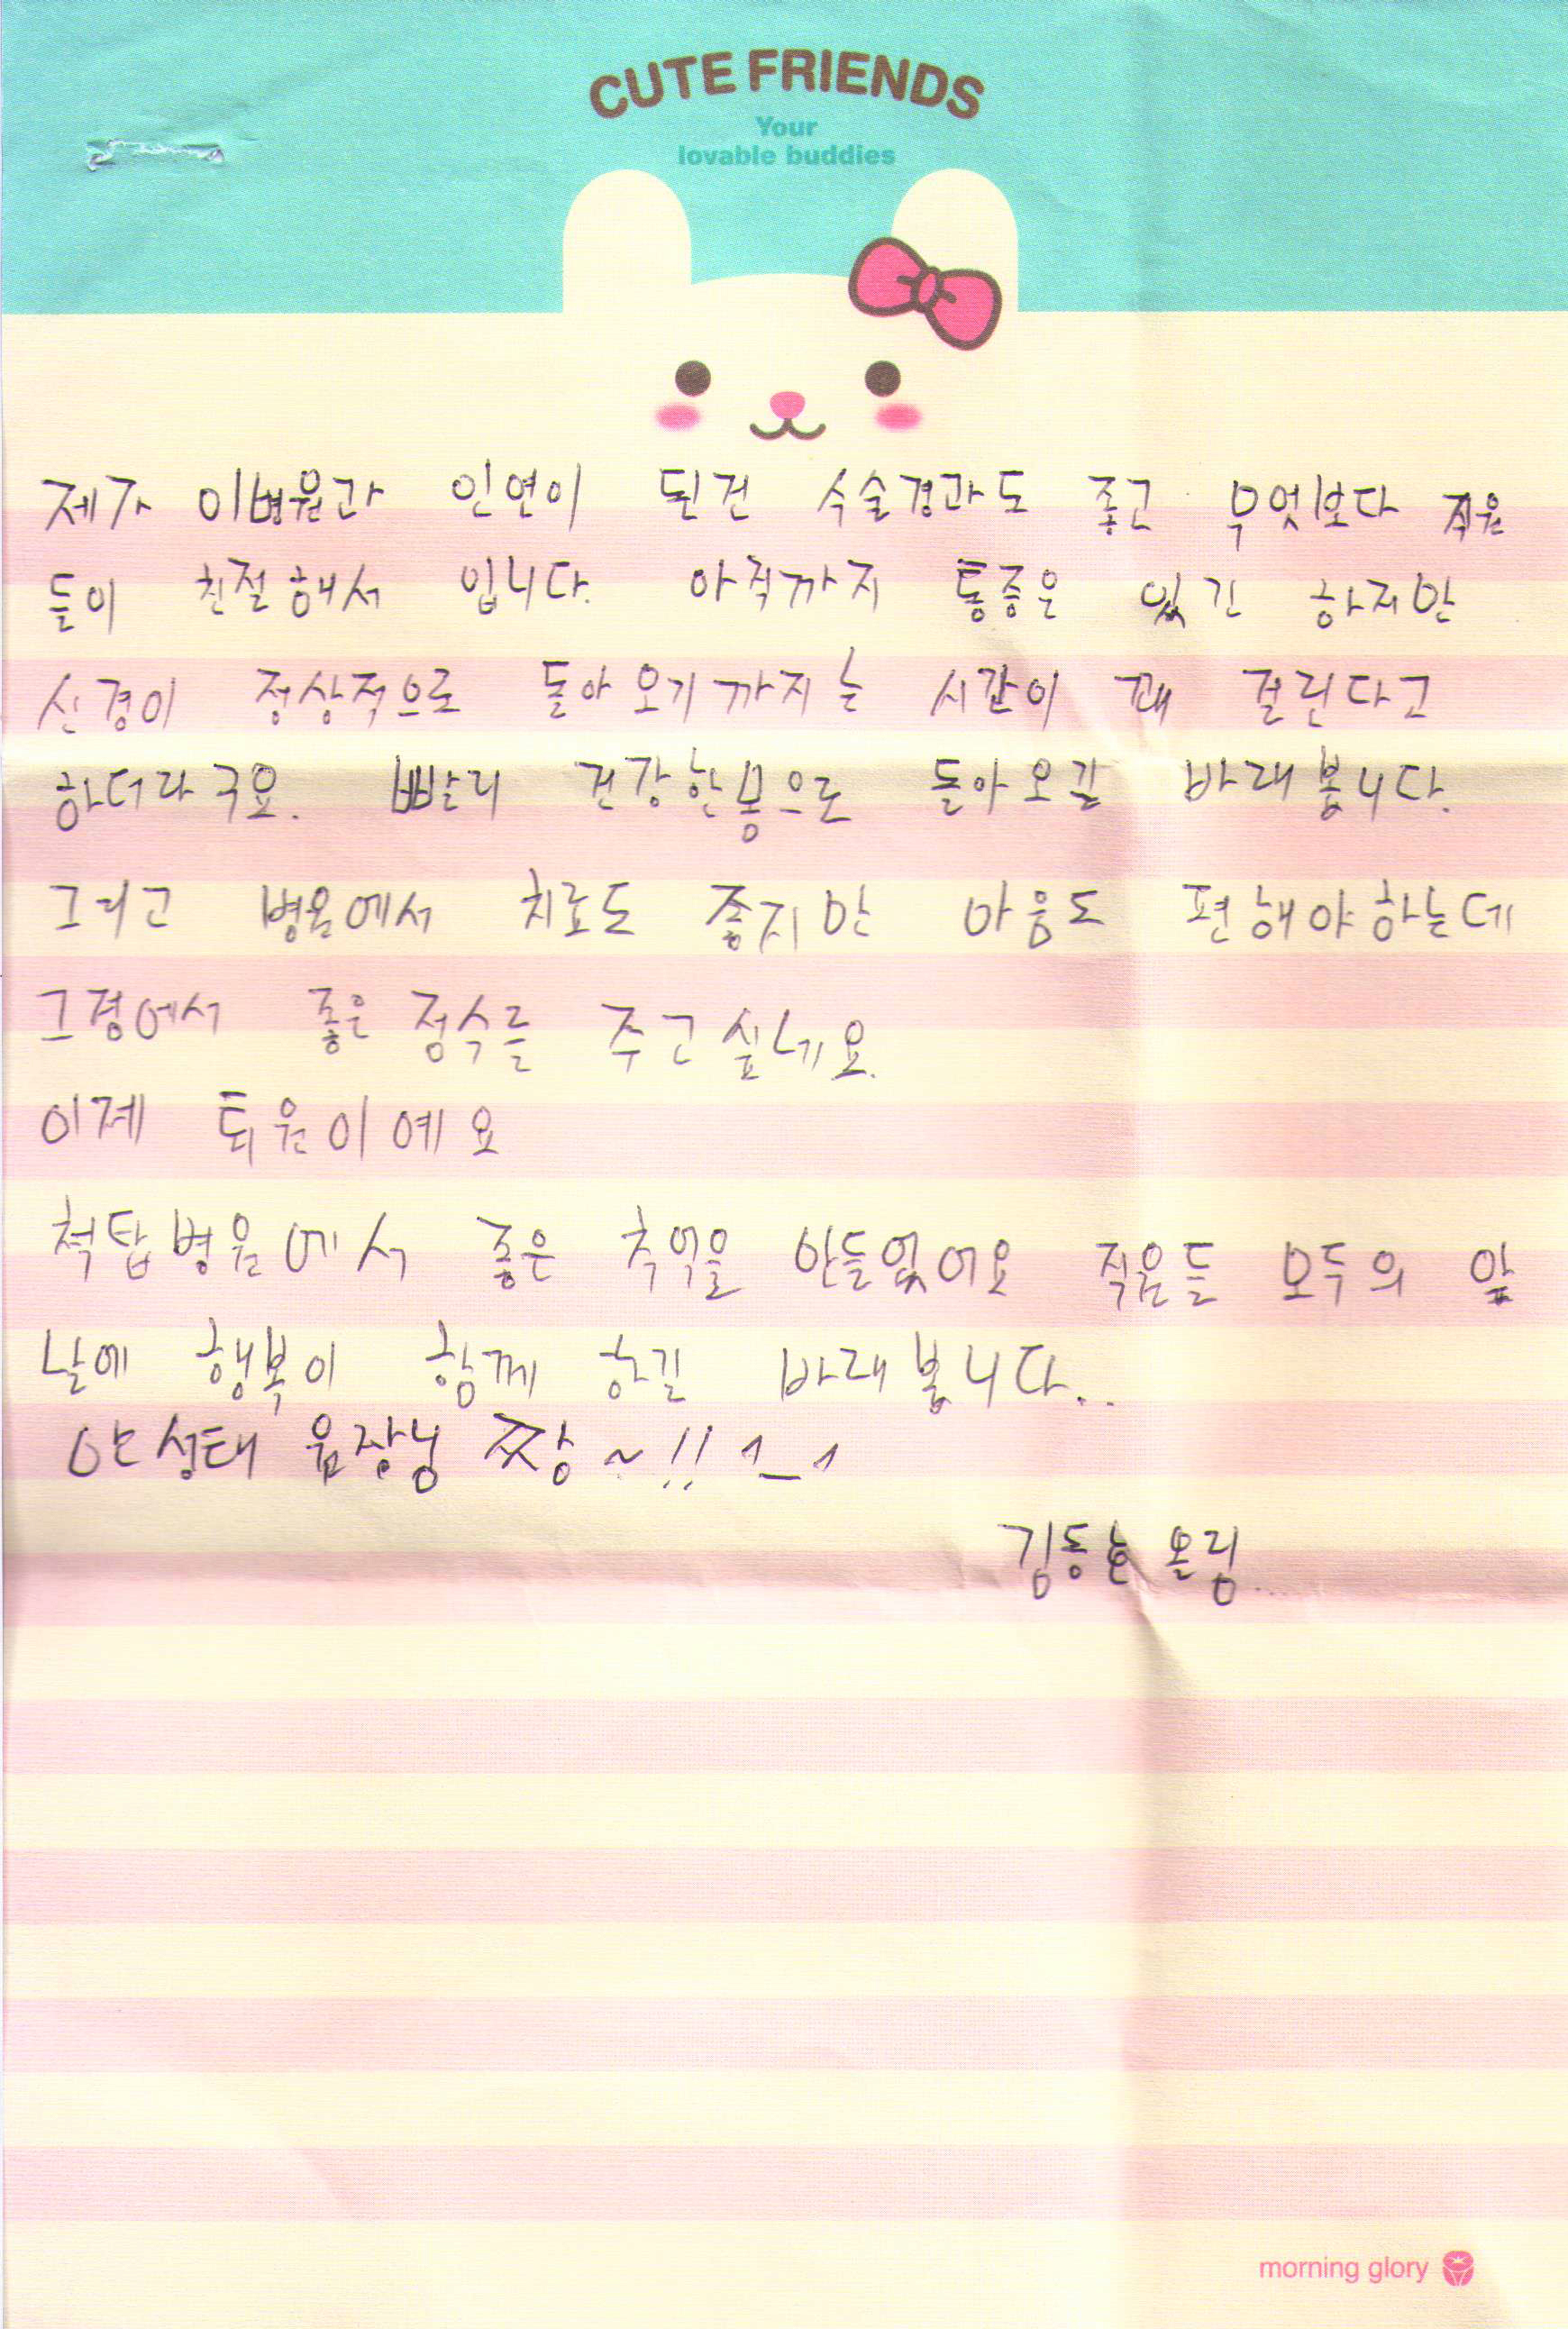 CUTE FRIENDS
Your
lovable buddies
제가 이병원과 인연이 된건 수술경과도 좋고 무엇보다 직원
들이 친절해서 입니다. 아직까지 통증은 있긴 하지만
신경이 정상적으로 돌아오기까지는 시간이 꽤 걸린다고
하더라구요. 빨리 건강한몸으로 돌아오길 바래봅니다.
그리고 병원에서 치료도 좋지만 마음도 편해야하는데
그점에서 좋은 점수를 주고싶네요.
이제 퇴원이예요
척탑병원에서 좋은 추억을 만들었어요 직원들 모두의 앞
날에 행복이 함께 하길 바래봅니다..
안성태 원장님 짱~!! ^_^
김동환 올림...
morning glory